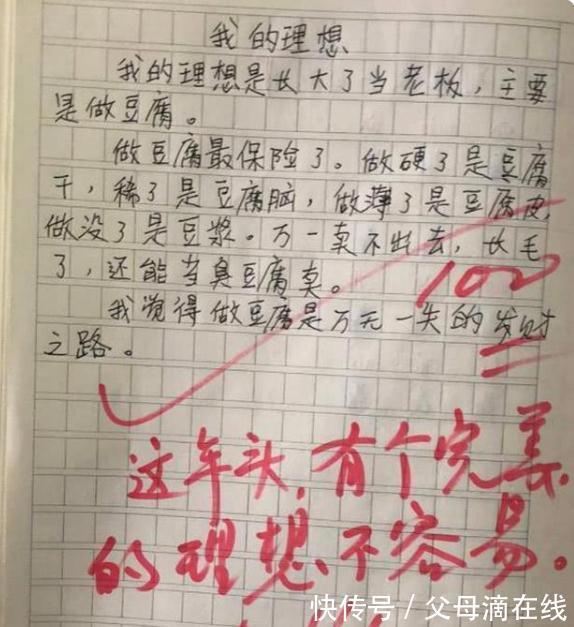 我的理想
我的理想是长大了当老板，主要
是做豆腐。
做豆腐最保险了。做硬了是豆腐
干，稀了是豆腐脑，做薄了是豆腐皮
做没了是豆浆。万一卖不出去，长毛
了，还能当臭豆腐卖。
100
我觉得做豆腐是万无一失的发财
之路。
这年头，有个完美
的理想不容易。
快传号／父母滴在线